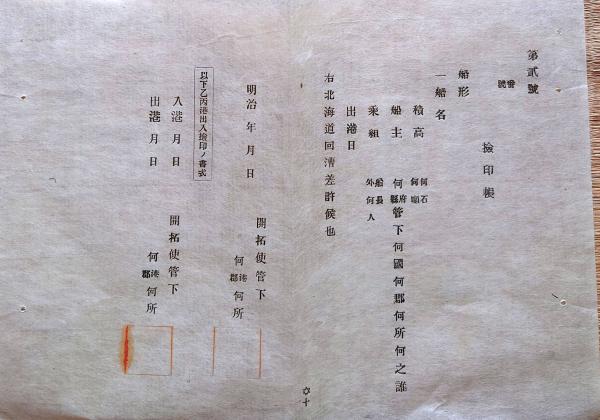 第貳號
番號
檢印帳
船形
一船名
積高 何石 何噸
船主 何府縣管下何國何郡何所何之誰
乘組 船長 外何人
出港日
右北海道回漕差許候也
明治 年 月 日
開拓使管下
何港郡何所
以下乙丙港出入檢印ノ書式
入港 月 日
開拓使管下
出港 月 日
何港郡何所